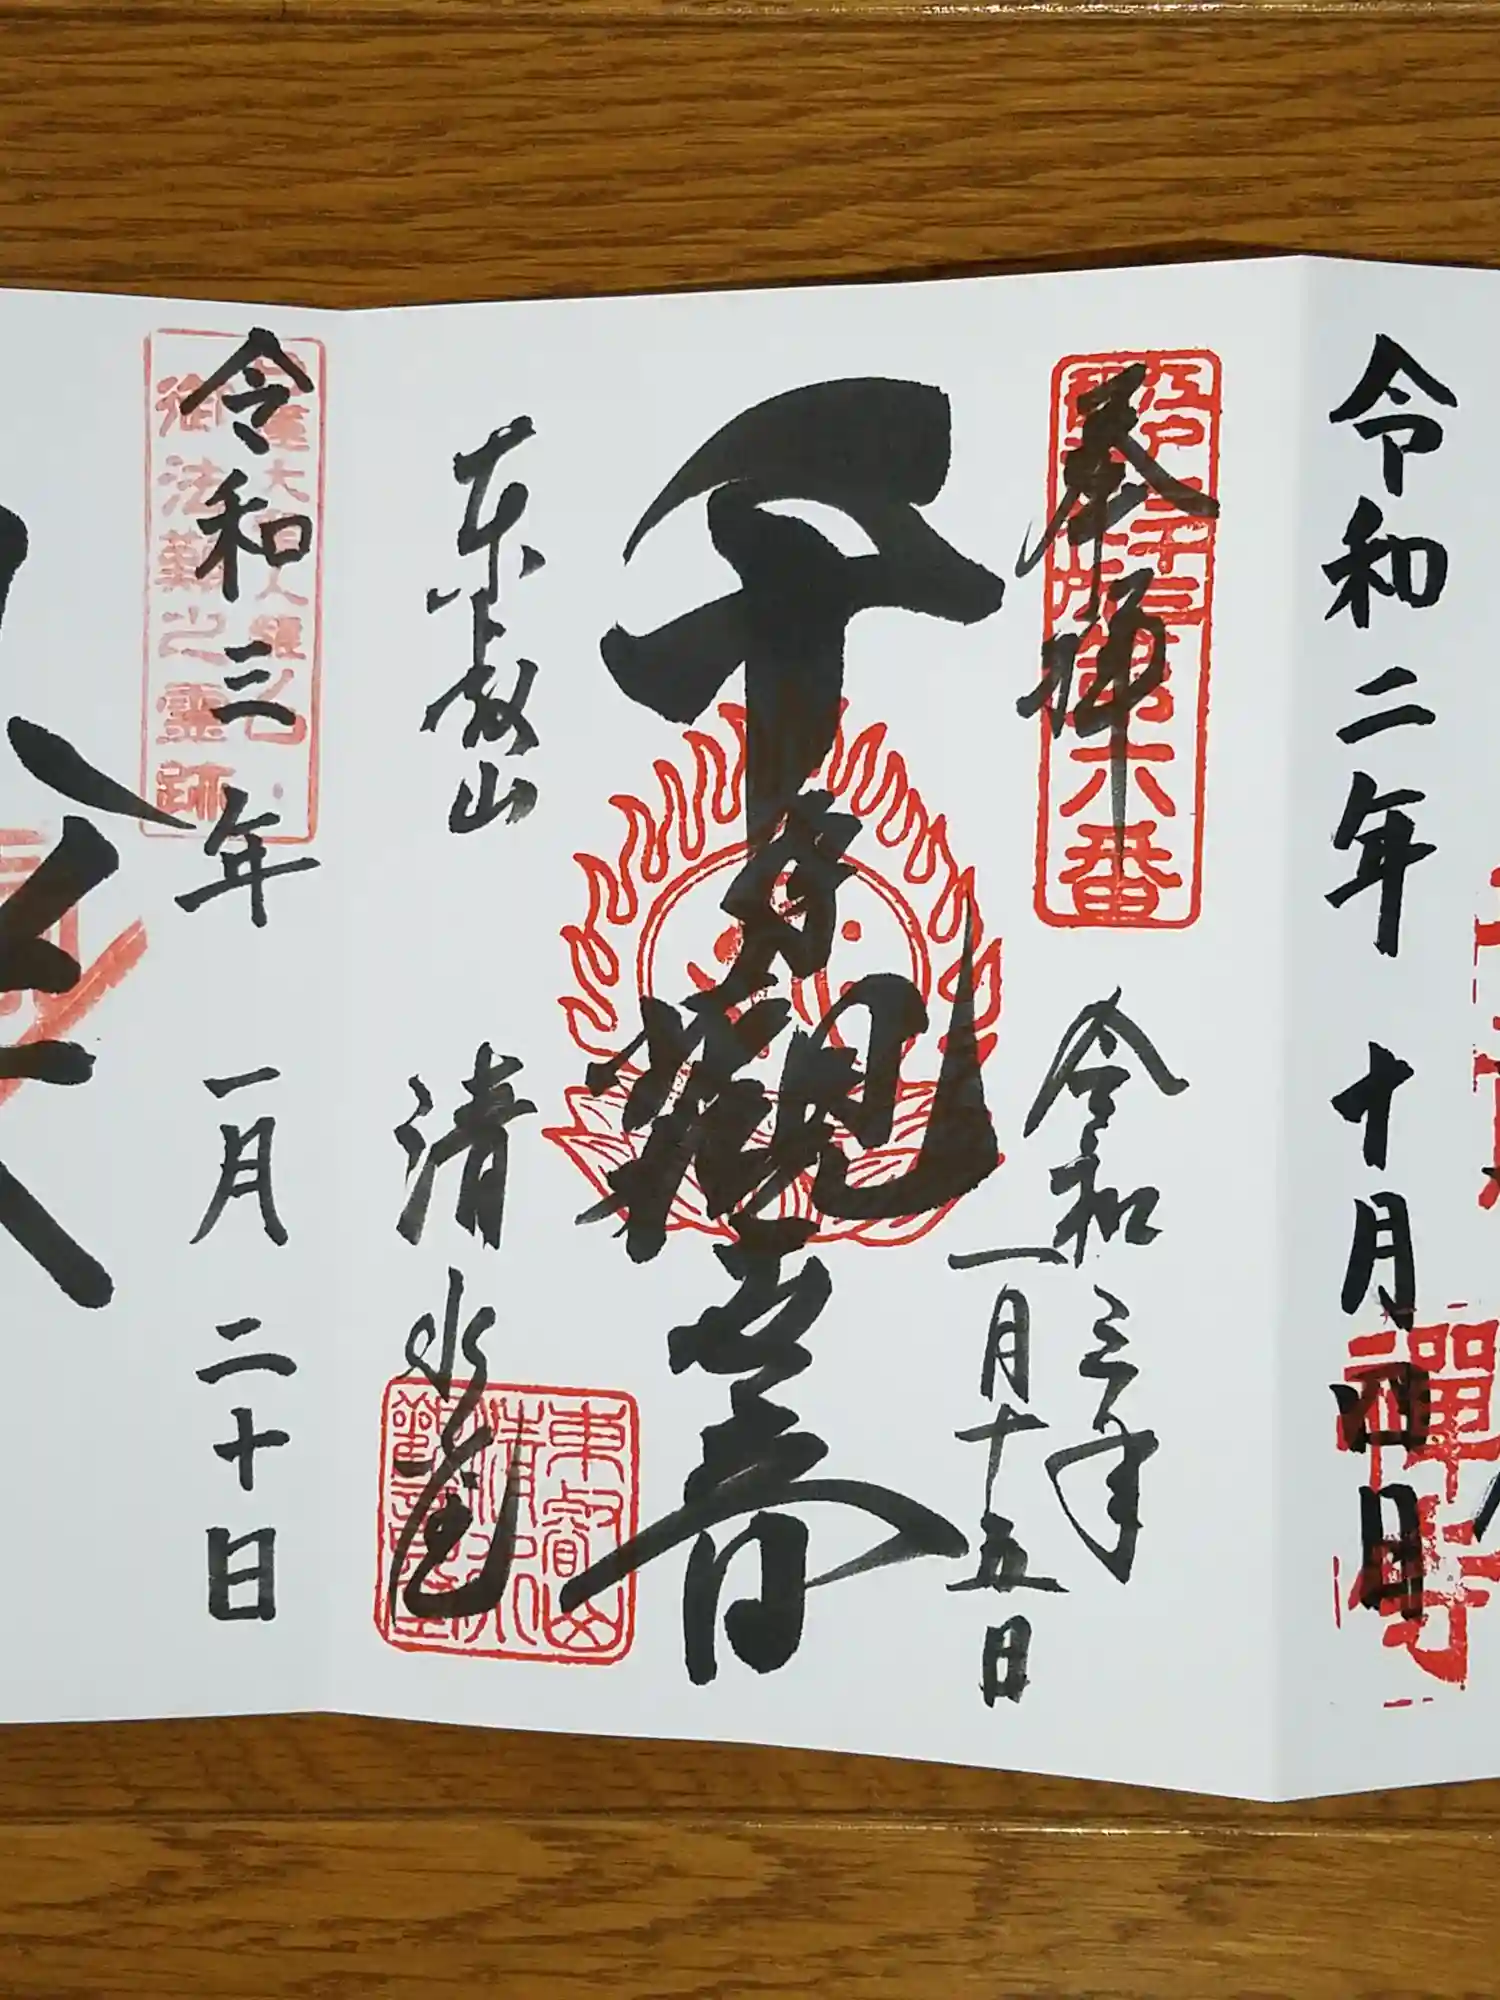 令和二年 十月四日
禅寺
江戸三十三所第六番
奉拝
令和三年
一月十五日
千手観世音
東叡山
清水堂
東叡山
清水
観音堂
令和三年 一月二十日
御法難之霊跡